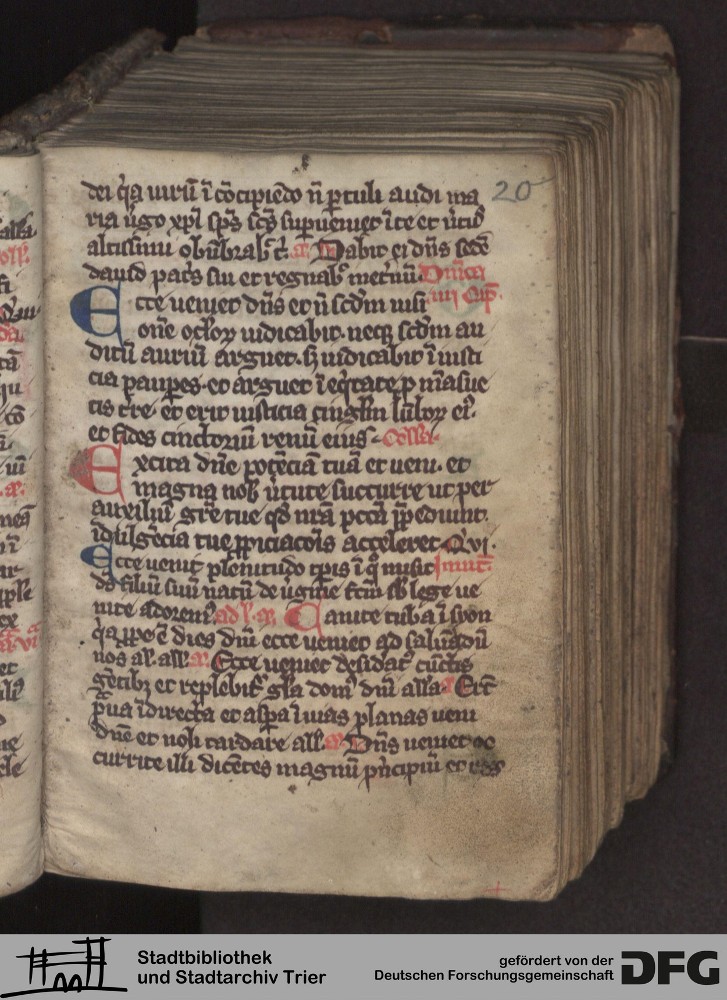 dei q̇a virū ī cōcipiēdo ñ ꝑtuli audi ma
20
ria v̇go xp̄i sp̄s sc̄s suꝑveniet ī te et v̇tꝰ
altissimi obūbrab̄t t̄. a. Dabit ei dn̄s sedē
dauid pat̄s sui et regnabꝰ inet̄nū. Dn̄ica
iiii
Ecce veniet dn̄s et ñ scd̄m visi
onē oclōꝝ iudicabit. neqꝫ scd̄m au
ditū auriū arguet. sꝫ iudicabit ī iusti
cia pauꝑes. et arguet ī eq̇tate ꝓ māsue
tis t̄re. et erit iusticia lūbōꝝ eiꝰ.
et fides cinctoriū renū eius. Coll̄a.
Excita dn̄e potēciā tuā et veni. et
magna nob̄ v̇tute succurre ut per
auxiliū gr̄e tue qd̄ nrā pcc̄a
īdulgēcia tue ꝓpiciacōis acceleret. Qui.
Ecce venit plenitudo tꝑis ī q̇ misit
dꝰ filiū suū natū de v̇gine fc̄m sb̄ lege ve
nite adoremꝰ. ad l. a. Canite tuba ī syon
q̇a ꝓxīe ē dies dn̄i ecce veniet ad saluādū
nos al̄. all̄a. a. Ecce veniet desidat̄ cūctis
gētibꝫ et replebit̄ gl̄a domꝰ dn̄i all̄a. a. Er̄t
p̄ua ī directa et asꝑa ī vias planas veni
dn̄e et noli tardare all̄. a. Dn̄s veniet oc
currite illi dicētes magnū pn̄cipiū et reg
Stadtbibliothek
und Stadtarchiv Trier
gefördert von der
Deutschen Forschungsgemeinschaft
DFG